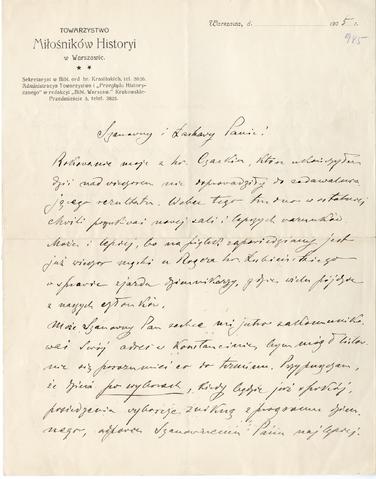 TOWARZYSTWO
Miłośników Historyi
w Warszawie.
Sekretaryat w Bibl. ord. hr. Krasińskich, tel. 3026.
Administracya Towarzystwa i „Przeglądu Historycznego" w redakcyi „Bibl. Warszaw." Krakowskie-
Przedmieście 5, telef. 3825.
Warszawa, d. 1905 r.
985
Szanowny i Łaskawy Panie!
Rokowania moje z hr. Czackim, które ukończyłem
dziś nad wieczorem nie doprowadziły do zadawalnia
jącego rezultatu. Wobec tego w ostatniej
chwili poszukiwać nowej sali i lepszych warunków
Może i lepiej, bo na piątek zapowiedziany jest
już wieczór u hr. Łubieńskiego
w sprawie zjazdu dziennikarzy, gdzie wielu pójdzie
z naszych członków.
Może Szanowny Pan zechce mi jutro zakomuniko
wać swój adres w Konstancinie, bym mógł listow
nie się porozumieć co do terminu. Przypuszczam,
że dzień po wyborach, kiedy będzie już spokój,
posiedzenia wyborcze znikną z programu dzien
nego, Szanownemu Panu najlepiej.